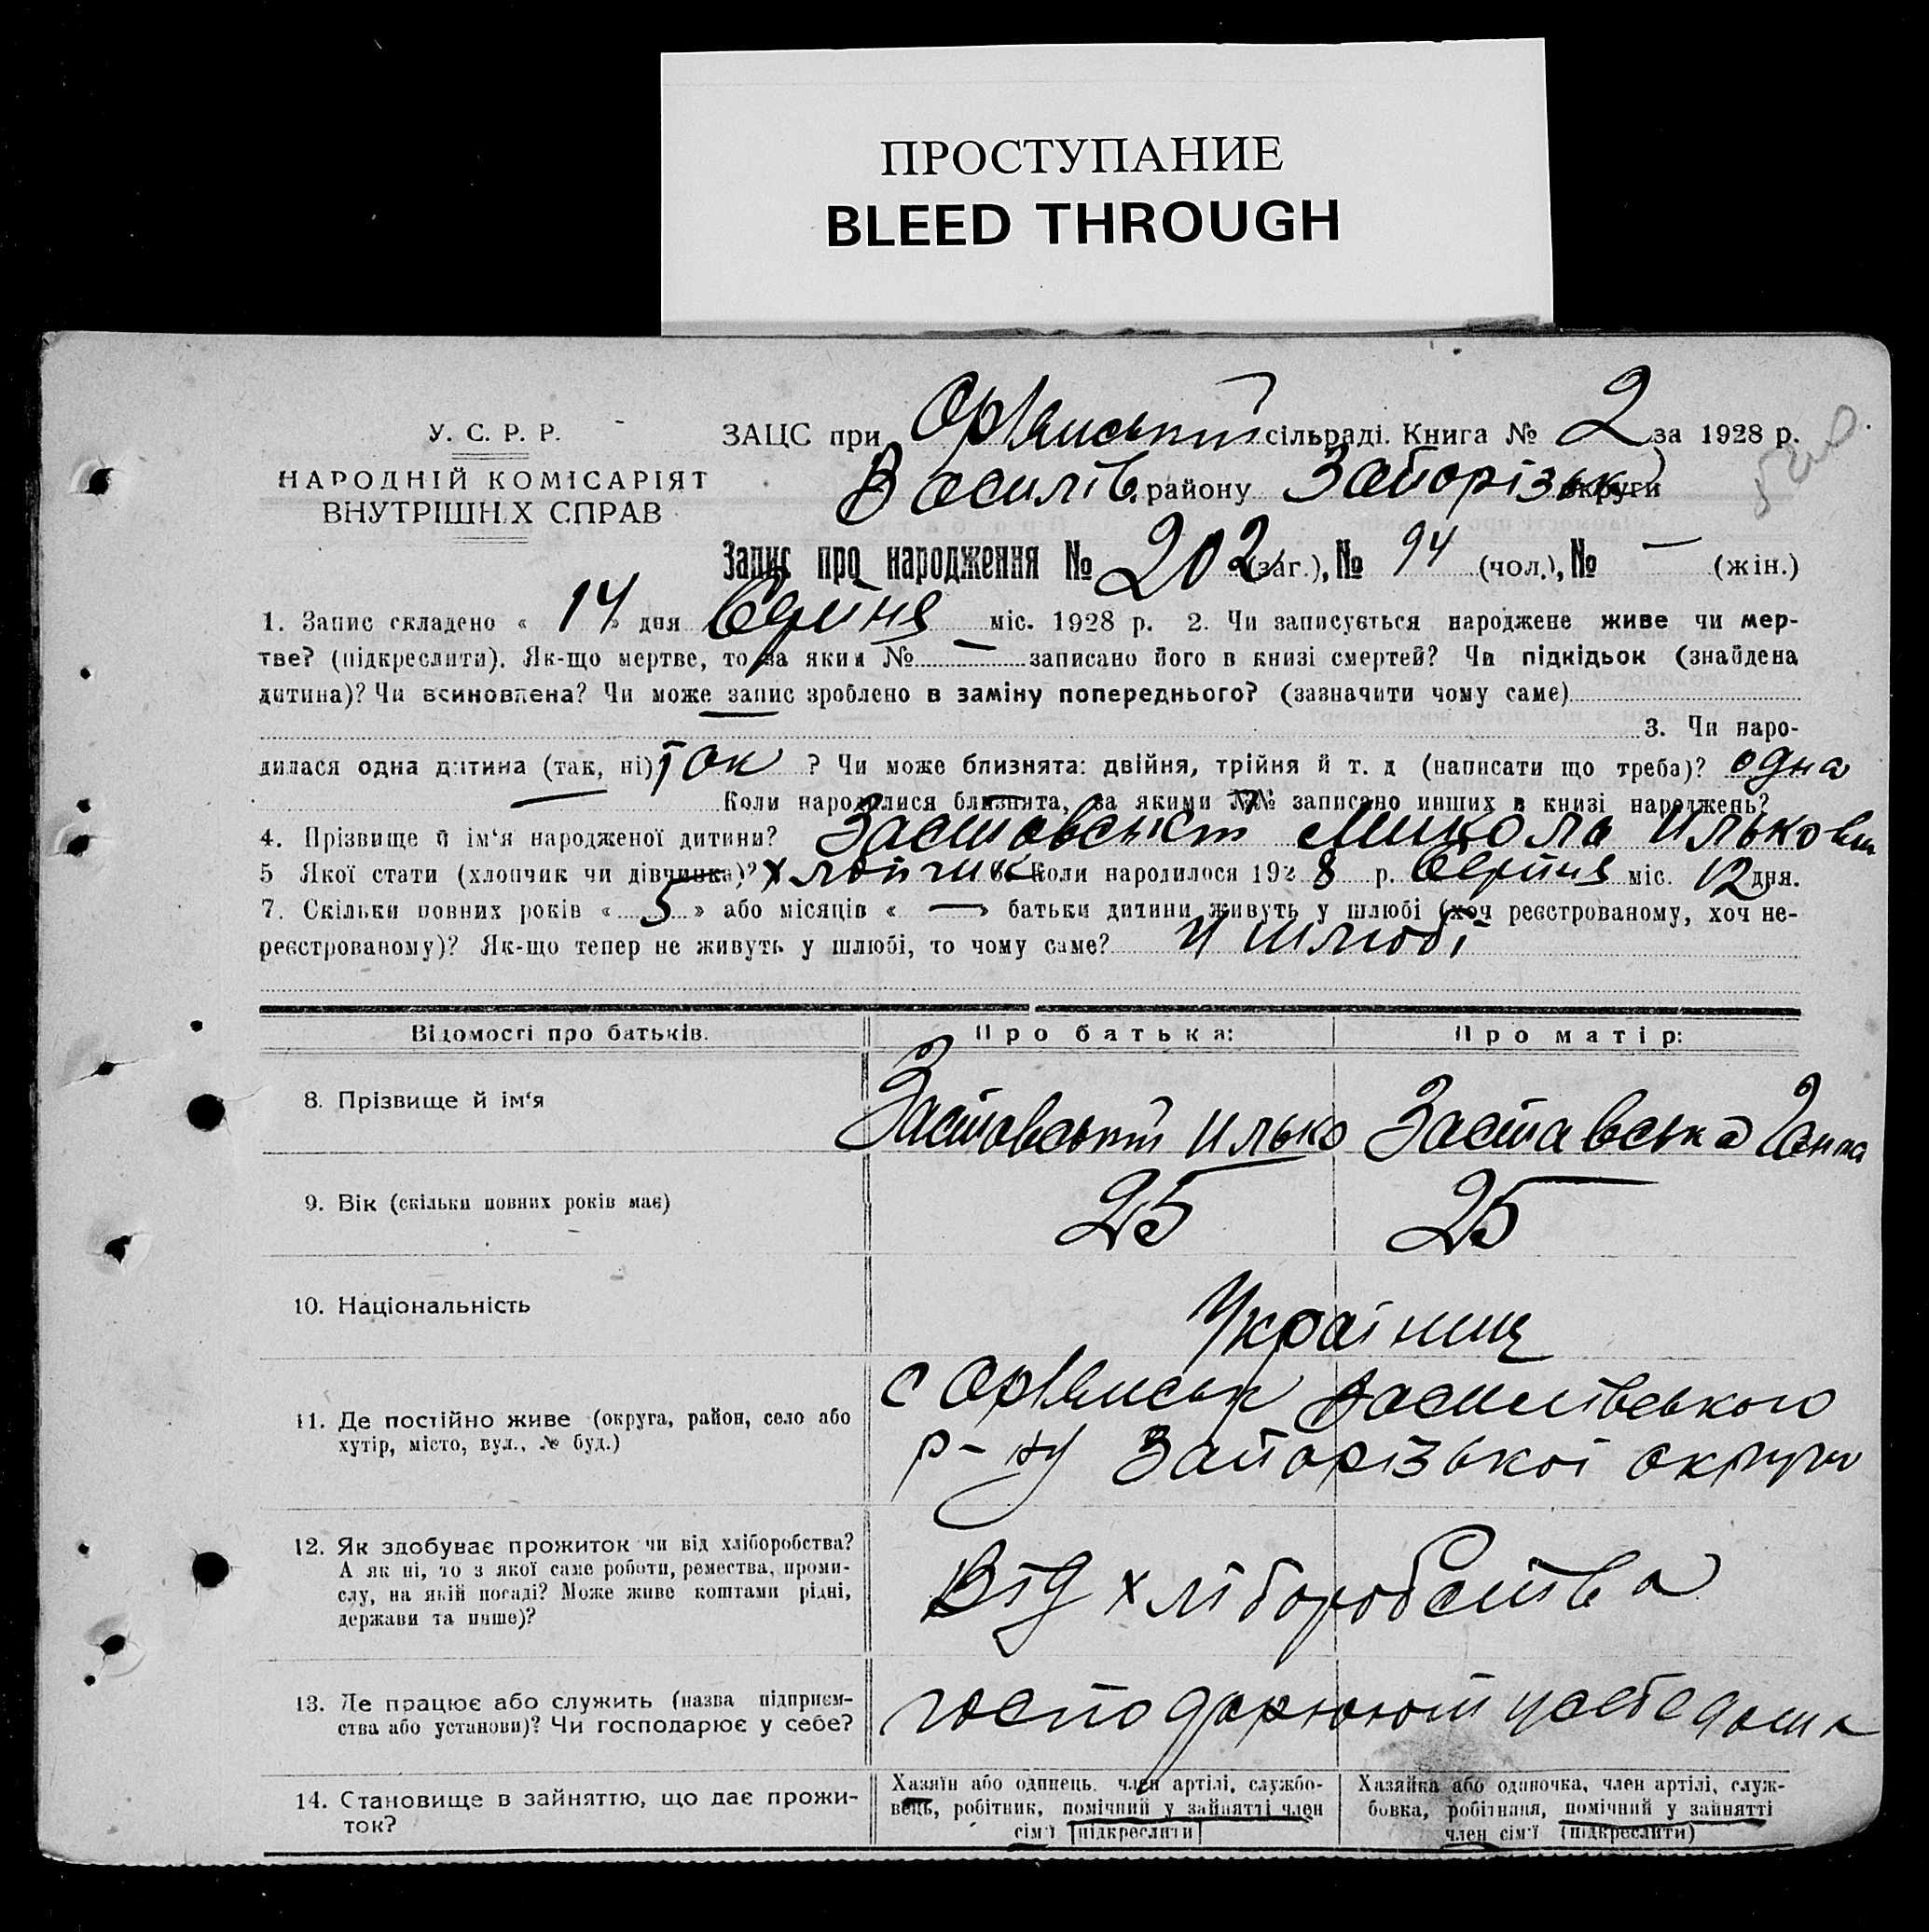 ПРОСТУПАНИЕ
BLEED THROUGH
У. С. Р. Р.
НАРОДНІЙ КОМІСАРІЯТ
ВНУТРІШНІХ СПРАВ
ЗАЦС при Орлянській сільраді. Книга № 2 за 1928 р.
Василів. району Запорізьк округи
Запис про народження № 202 (заг.), № 94 (чол.), № — (жін.)
1. Запис складено « 14 » дня Серпня міс. 1928 р. 2. Чи записується народжене живе чи мер-
тве? (підкреслити). Як-що мертве, то за яким № — записано його в книзі смертей? Чи підкідьок (знайдена
дитина)? Чи всиновлена? Чи може запис зроблено в заміну попереднього? (зазначити чому саме)
3. Чи наро-
дилася одна дитина (так, ні) так ? Чи може близнята: двійня, трійня й т. д (написати що треба)? одна
Коли народилися близнята, за якими №№ записано инших в книзі народжень?
4. Прізвище й ім‘я народженої дитини? Заставський Микола Илькович
5 Якої стати (хлопчик чи дівчинка)? Хлопчик 6. Коли народилося 1928 р. Серпня міс. 12 дня.
7. Скільки повних років « 5 » або місяців « — » батьки дитини живуть у шлюбі (хоч реєстрованому, хоч не-
реєстрованому)? Як-що тепер не живуть у шлюбі, то чому саме? У шлюбі
Відомості про батьків.
Про батька:
Про матір:
8. Прізвище й ім‘я
Заставський Илько
Заставська Ганна
9. Вік (скільки повних років має)
25
25
10. Національність
Українці
11. Де постійно живе (округа, район, село або
хутір, місто, вул., № буд.)
с Орлянськ Василівського
р-ну Запорізької округи
12. Як здобуває прожиток чи від хліборобства?
А як ні, то з якої саме роботи, ремества, проми-
слу, на якій посаді? Може живе коштами рідні,
держави та инше)?
Від хліборобства
13. Де працює або служить (назва підприєм-
ства або установи)? Чи господарює у себе?
господарюють у себе дома
14. Становище в зайняттю, що дає прожи-
ток?
Хазяїн або одинець, член артілі, службо-
вець, робітник, помічний у зайнятті член
сім‘ї (підкреслити)
Хазяйка або одиночка, член артілі, служ-
бовка, робітниця, помічний у зайнятті
член сім‘ї (підкреслити)